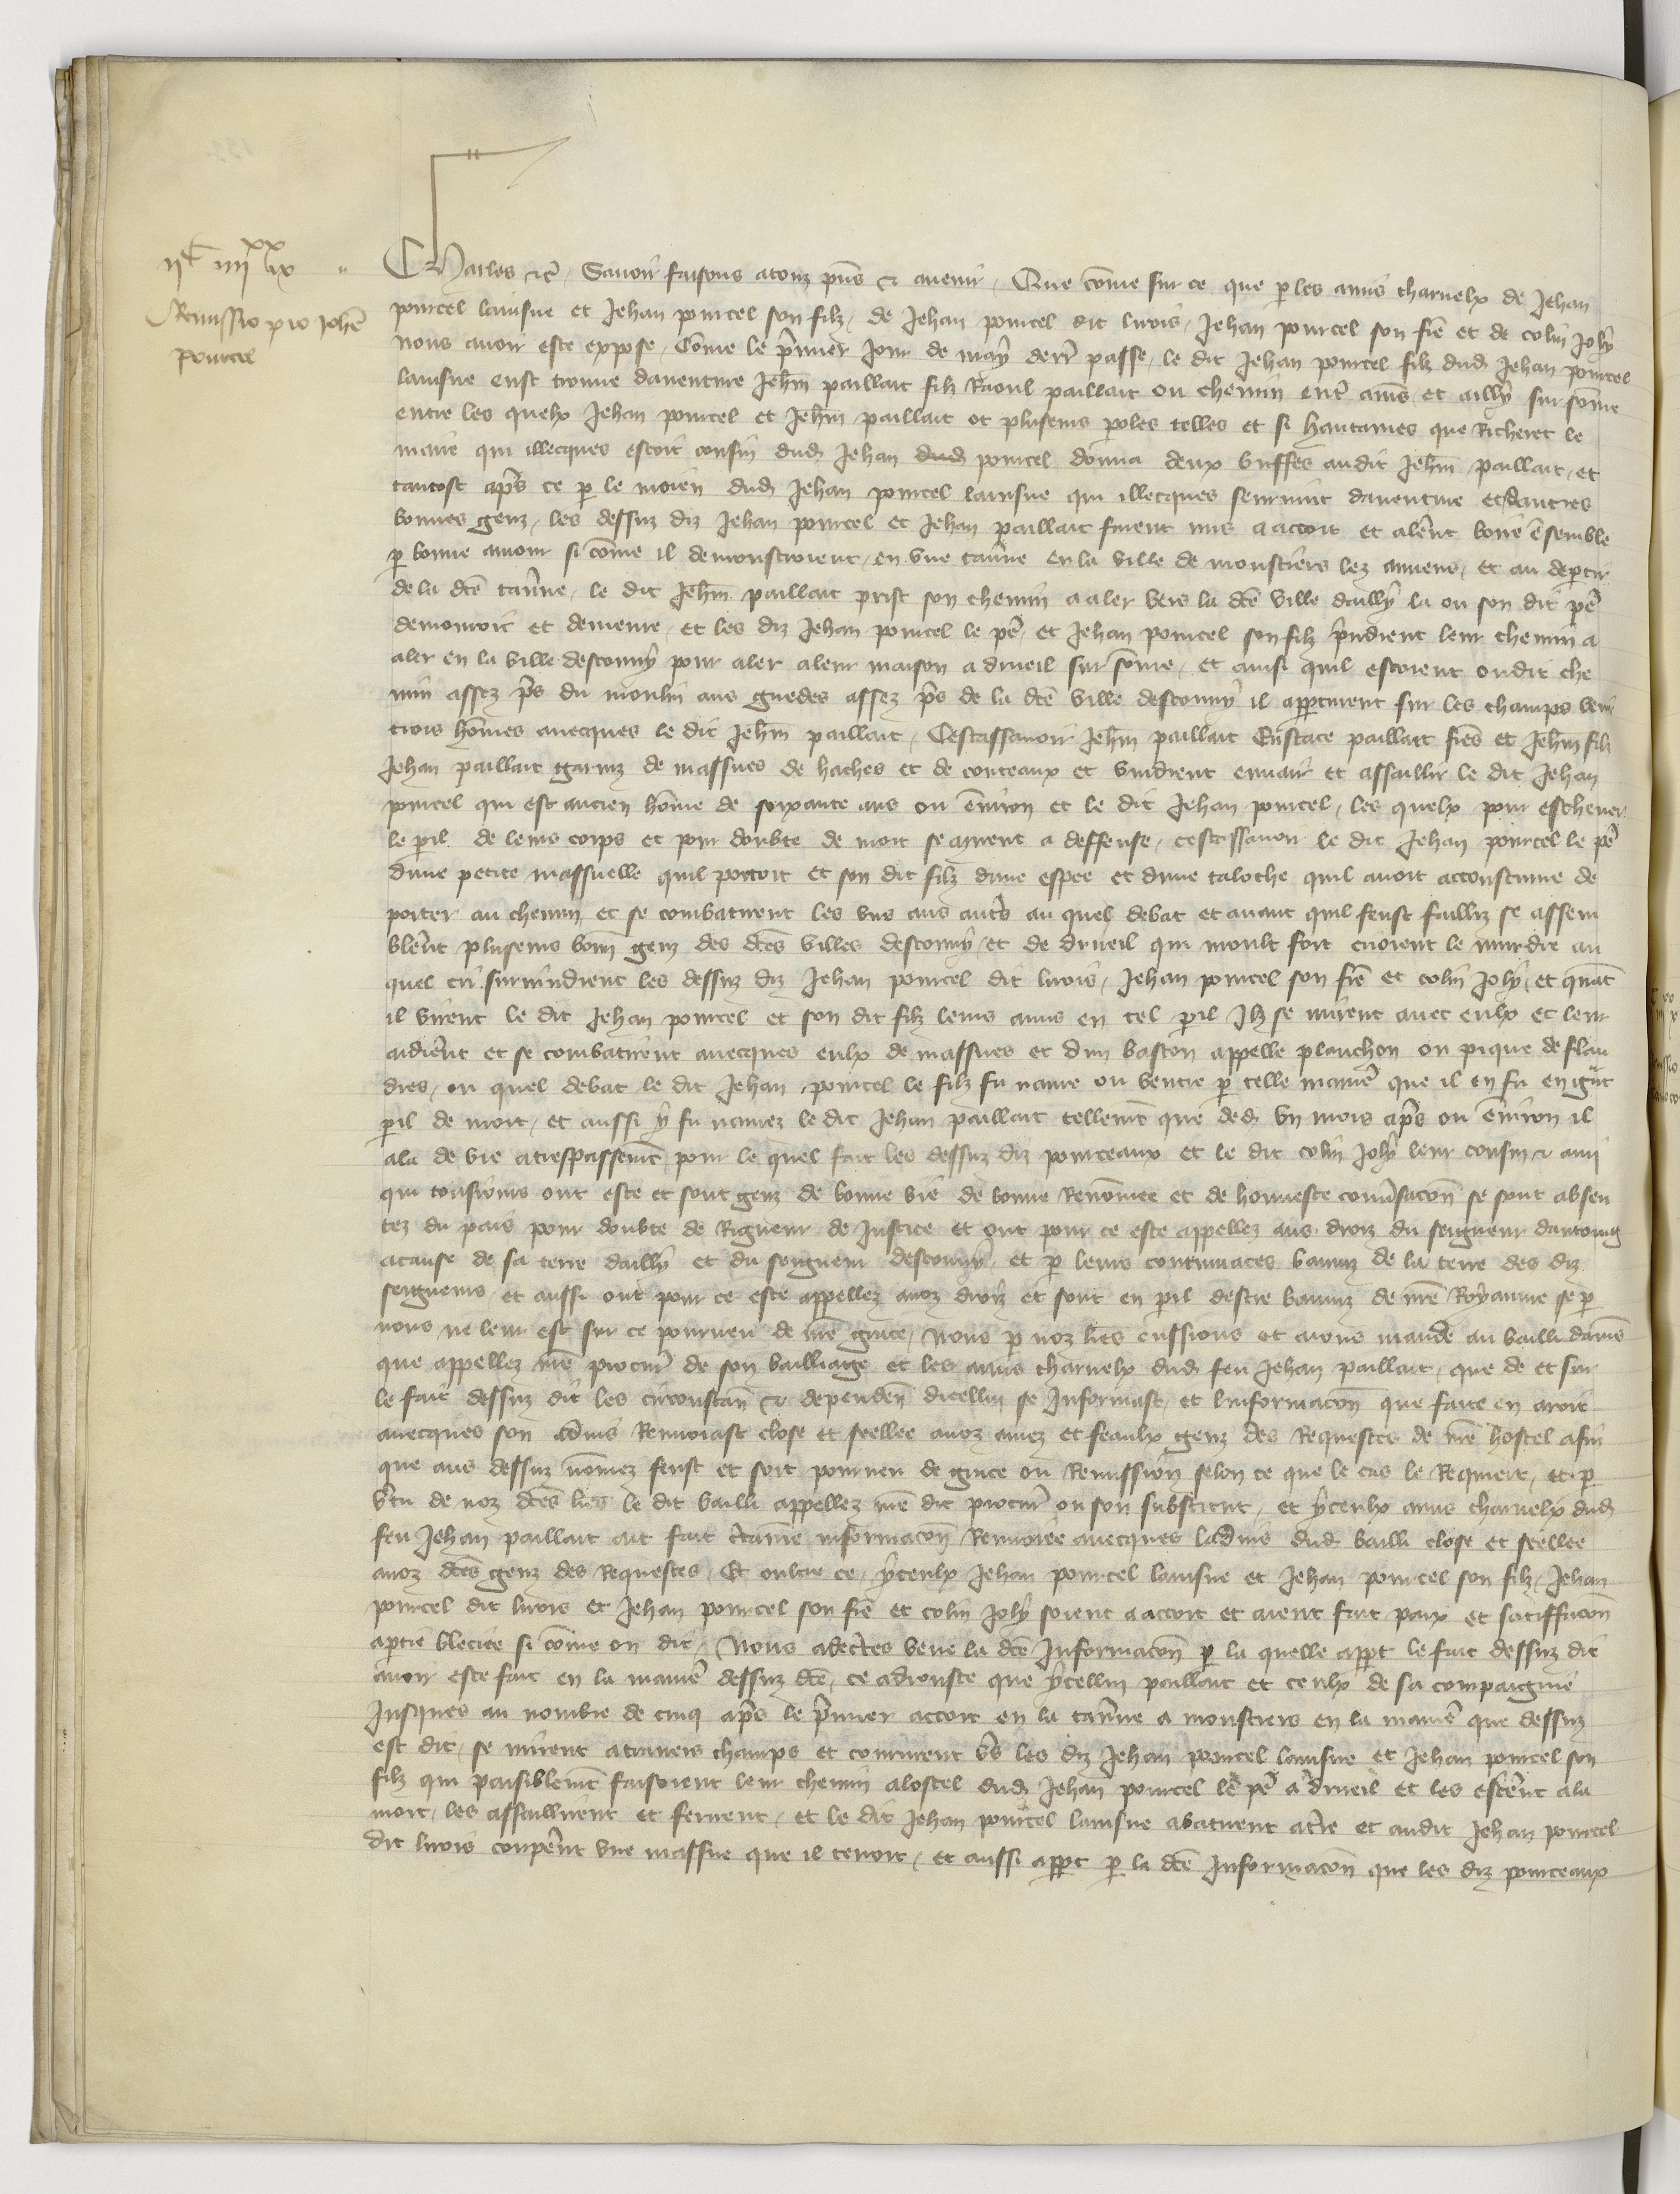 IIc IIIIxx IX
Remissio pro Johe
pourcel
Charles etc. Savoir faisons a touz pns et avenir. Que come sur ce que p les amis charnelx de Jehan
pourcel lainsne et Jehan pourcel son filz, de Jehan pourcel dit livois, Jehan pourcel son fre et de colin Joly
nous avoir este expose, Come le pmier jour de may derr passe, le dit Jehan pourcel filz dud Jehan pourcel
lainsne eust trouve daventure Jehn paillart filz Raoul paillart ou chemin entr amis et ailly sur some
entre les quelx Jehan pourcel et Jehn paillart ot pluseurs poles telles et si haultaines que Richeret le
maire qui illecques estoit cousin dud Jehan dud pourcel donna deux buffes audit Jehn paillart, et
tantost apres ce p le moien dud Jehan pourcel lainsne qui illecques seurvint daventure et dautres
bonnes genz, les dessuz diz Jehan pourcel et Jehan paillart furent mis a accort et alerent boire ensemble
p bonne amour si come il demonstroient, en une taverne en la ville de monstiers lez amiens, et au deptir
de la dce taverne, le dit Jehn paillart prist son chemin a aler vers la dce ville dailly la ou son dit pe
demouroit et demeure, et les diz Jehan pourcel le pe, et Jehan pourcel son filz pndrent leur chemin a
aler en la ville descouvy pour aler a leur maison a drueil sur some, et ainsi quil estoient oudit che
min assez pres du moulin aus guedes assez pres de la dce ville descouvy il appceurent sur les champs venir
trois homes avecques le dit Jehn paillart, Cestassavoir Jehn paillart Eustace paillart freres et Jehn filz
Jehan paillart garniz de massues de haches et de couteaux et vindrent envair et assaillir le dit Jehan
pourcel qui est ancien home de soixante ans ou environ et le dit Jehan pourcel, les quelx pour eschever
le pil de leurs corps et pour doubte de mort se mirent a deffense, cestassavoir le dit Jehan pourcel le pe
dune petite massuelle quil portoit et son dit filz dune espee et dune taloche quil avoit acoustume de
porter au chemin et se combatirent les uns aus autrs au quel debat et avant quil feust failliz se assem
blerent pluseurs bonnes genz des dces villes descouvy et de drueil qui moult fort crioient le murdre au
quel cri survindrent les dessuz diz Jehan pourcel dit livois, Jehan pourcel son fre et colin Joly, et quant
il virent le dit Jehan pourcel et son dit filz leurs amis en tel pil Ilz se mirent avec eulx et leur
aiderent et se combatirent avecques eulx de massues et dun baston appelle planchon ou pique de flan
dres, ou quel debat le dit Jehan pourcel le filz fu navre ou ventre p telle manie que il en fu en gnt
pil de mort, et aussi y fu navrez le dit Jehan paillart tellemt que ded un mois apres ou environ il
ala de vie a trespassemt pour le quel fait les dessuz diz pourceaux et le dit colin Joly leur cousin et ami
qui tousiours ont este et sont genz de bonne vie de bonne Renommee et de honneste conversacon se sont absen
tez du pais pour doubte de Rigueur de Justice et ont pour ce este appellez aus droiz du seigneur dantoing
a cause de sa terre dailly et du seigneur descouvy, et p leurs contumaces banniz de la terre des diz
seigneurs, et aussi ont pour ce este appellez a noz droiz et sont en pil destre banniz de nre Royaume se p
nous ne leur est sur ce pourveu de nre grace, Nous p noz lres eussions et aions mande au bailli damiens
que appellez nre procur de son bailliage et les amis charnelx dud feu Jehan paillart, que de et sur
le fait dessuz dit les circonstan et dependen dicellui se Informast, et linformacon que faite en avoit
avecques son advis Renvoiast close et seellee a noz amez et feaulx genz des Requestes de nre hostel afin
que aus dessuz nomez feust et soit pourveu de grace ou Remission selon ce que le cas le Requiert, et p
vertu de noz dces lres le dit bailli appellez nre dit procur ou son substitut, et yceulx amis charnelx dud
feu Jehan paillart ait fait certaine informacon Renvoiee avecques ladvis dud bailli close et seellee
a noz dces genz des Requestes, Et oultre ce, yceulx Jehan pourcel lainsne et Jehan pourcel son filz, Jehan
pourcel dit livois et Jehan pourcel son fre et colin Joly soient a accort et aient fait paix et satiffacon
a ptie blecice si come on dit, Nous adcertes veue la dce Informacon p la quelle appt le fait dessuz dit
avoir este fait en la manie dessuz dce, ce adiouste que ycellui paillart et ceulx de sa compaignie
Jusques au nombre de cinq apres le pmier accort en la taverne a monstiers en la manie que dessuz
est dit, se mirent a travers champs et coururent vers les diz Jehan pourcel lainsne et Jehan pourcel son
filz qui paisiblemt faisoient leur chemin a lostel dud Jehan pourcel le pe a drueil et les escrierent a la
mort, les assaillirent et ferirent, et le dit Jehan pourcel lainsne abatirent a terre et audit Jehan pourcel
dit livois couperent une massue que il tenoit, et aussi appt p la dce Informacon que les diz pourceaux